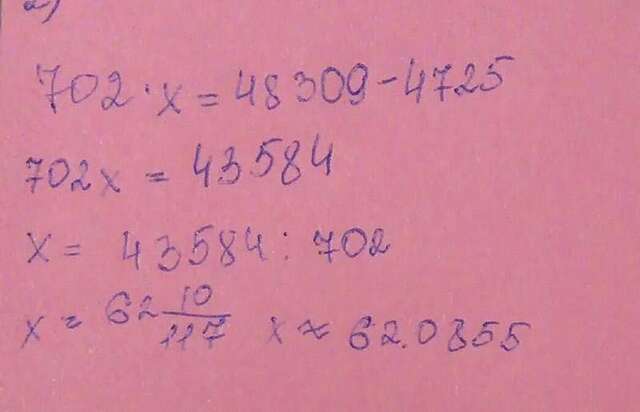 2)
702 · x = 48309 - 4725
702x = 43584
x = 43584 : 702
x = 62 10/117 x ≈ 62.0855